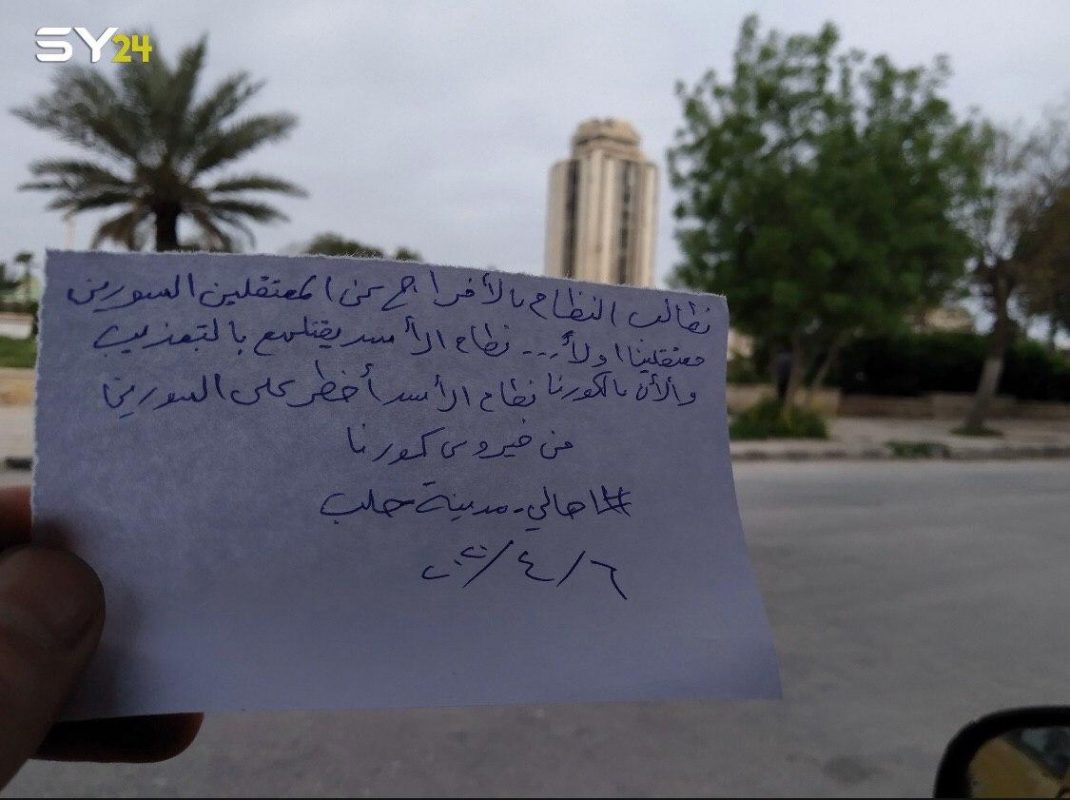 SY24
نطالب النظام بالأفراج عن المعتقلين السورين
معتقلينا اولاً... نظام الأسد يقتلهم بالتعذيب
والأن بالكورنا نظام الأسد أخطر على السورين
من فيروس كورنا
#اهالي-مدينة حلب
٦/٤/٢٠٢٠